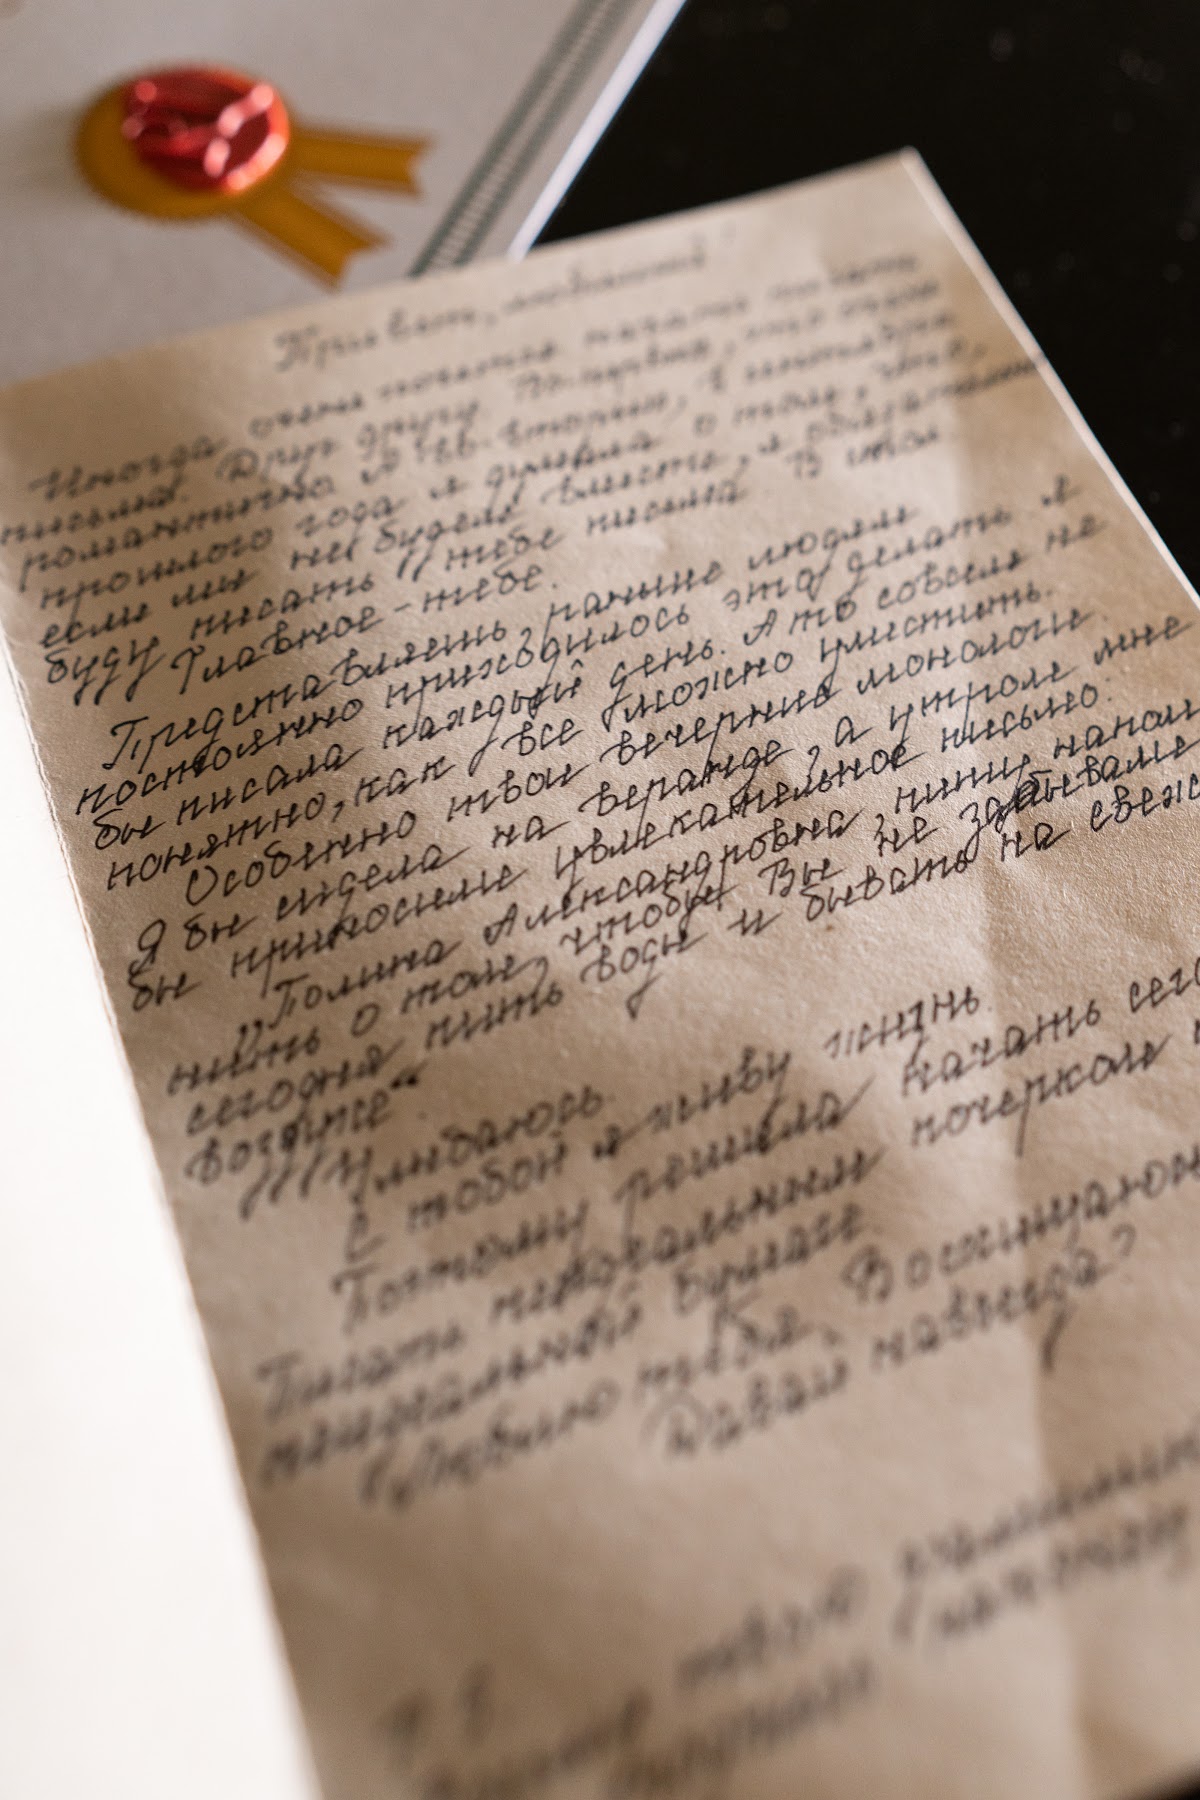 Привет, любимый!
Иногда очень хочется начать писать
письма. Друг другу. Во-первых, это очень
романтично. А во-вторых, в сентябре
прошлого года я думала о том, что,
если мы не будем вместе, я обязательно
буду писать тебе письма. В стол.
Главное - тебе.
Представляешь, раньше людям
постоянно приходилось это делать. Я
бы писала каждый день. А то совсем не
понятно, как все можно уместить.
Особенно твои вечерние монологи.
Я бы сидела на веранде, а утром мне
бы приносили увлекательное письмо:
„Полина Александровна, пишу напом
нить о том, чтобы Вы не забывали
сегодня пить воды и бывать на свеж
воздухе“.
Улыбаюсь.
С тобой я живу жизнь.
Поэтому решила начать сего
Писать неидеальным почерком
неидеальной бумаге.
Люблю тебя. Восхищаюсь
Давай навсегда?